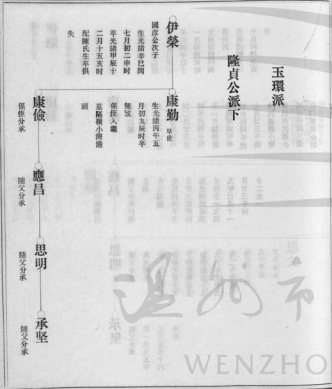 玉環派
隆貞公派下
伊榮
國彦公次子
生光緒辛巳閏
七月初二申时
卒光緒甲辰十
二月十五亥时
配陳氏生卒俱
失
康勤 早世
生光緒丙午五
月初九辰时卒
無攷
係侄入繼
墓隔嶺小灣港
頭
康儉
係侄分承
應昌
随父分承
思明
随父分承
承坚
随父分承
温州市
WENZHO